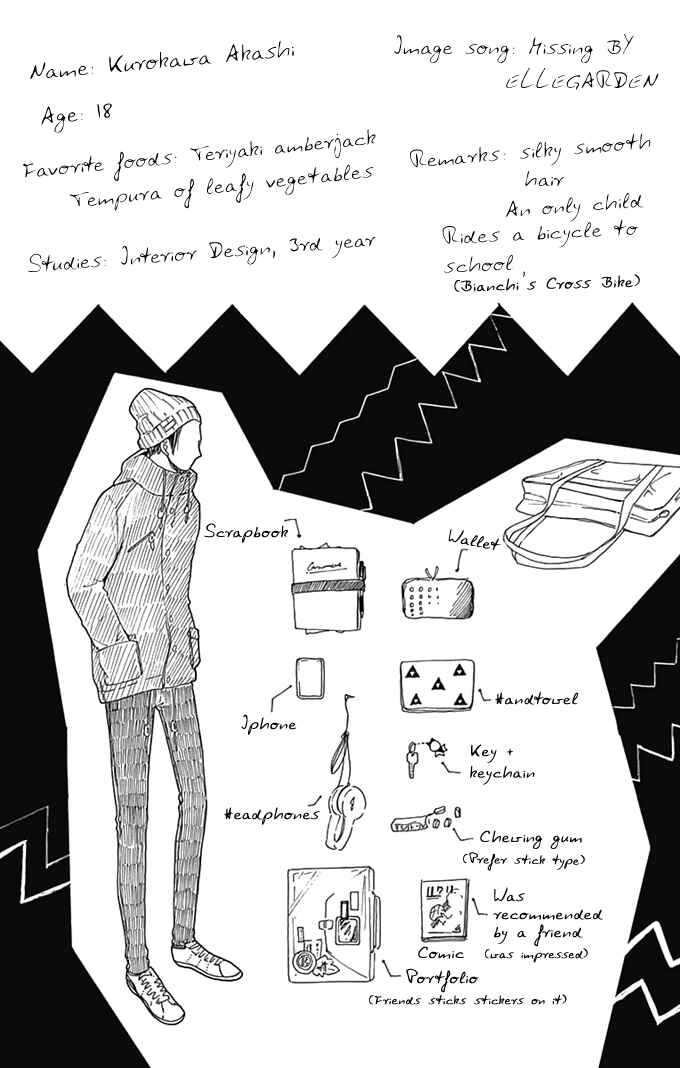 Name: Kurokawa Akashi
Age: 18
Favorite foods: Teriyaki amberjack
Tempura of leafy vegetables
Studies: Interior Design, 3rd year
Image song: Missing BY
ELLEGARDEN
Remarks: silky smooth
hair
An only child
Rides a bicycle to
school,
(Bianchi's Cross Bike)
Scrapbook
Wallet
Iphone
Handtowel
Headphones
Key +
keychain
Chewing gum
(Prefer stick type)
Was
recommended
by a friend
(was impressed)
Comic
Portfolio
(Friends sticks stickers on it)